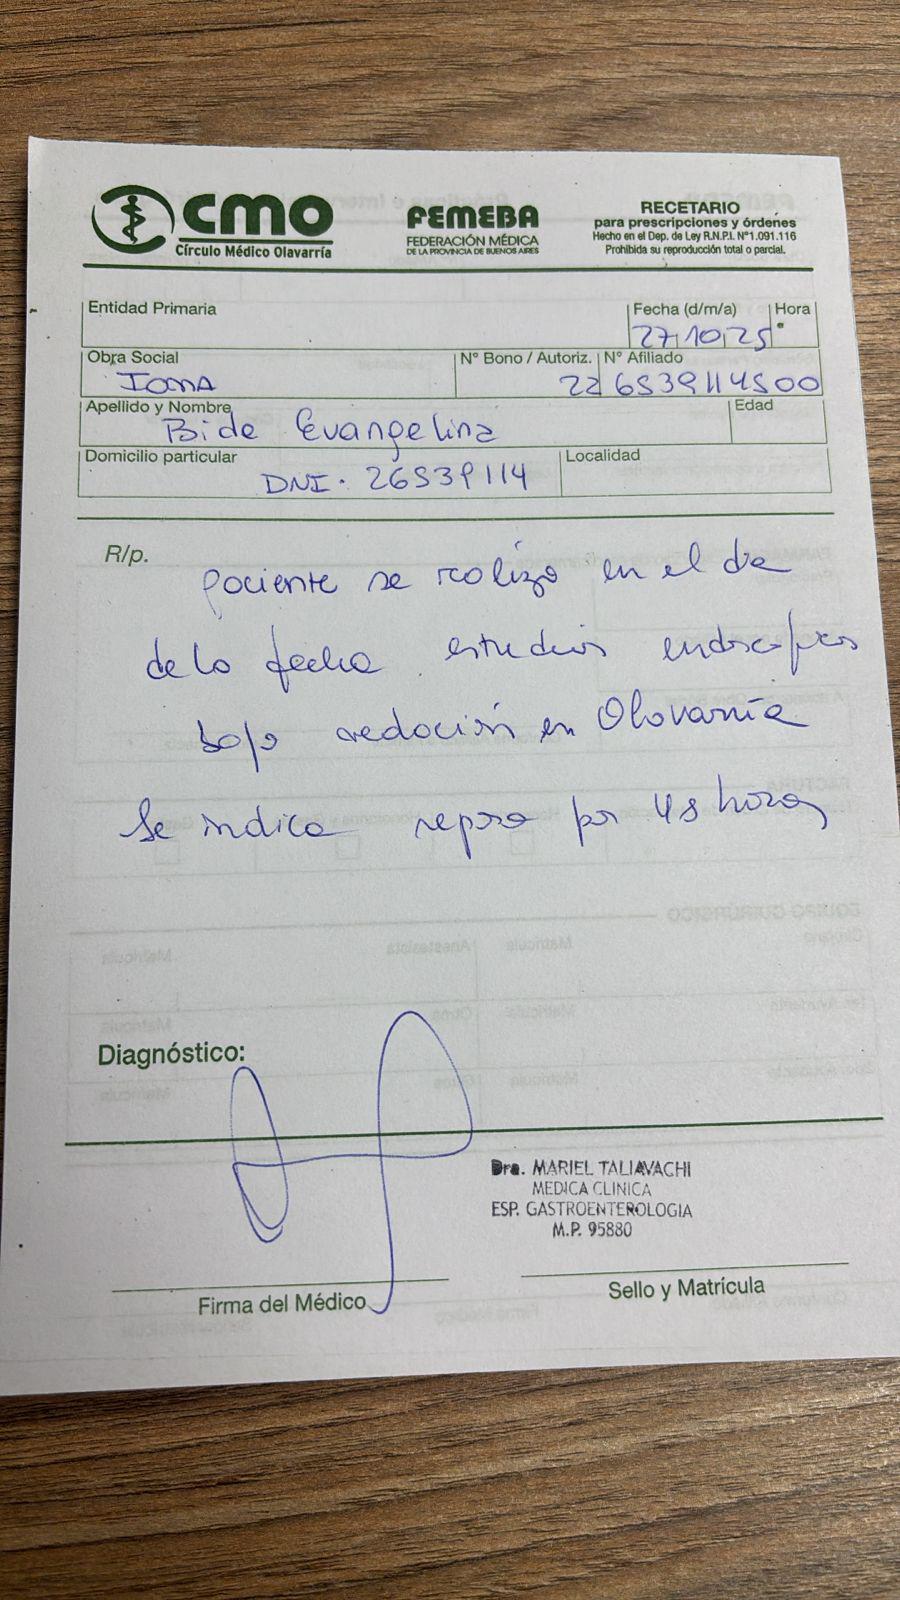 CMO
Círculo Médico Olavarría
FEMEBA
FEDERACIÓN MÉDICA
DE LA PROVINCIA DE BUENOS AIRES
RECETARIO
para prescripciones y órdenes
Hecho en el Dep. de Ley R.N.P.I. Nº1.091.116
Prohibida su reproducción total o parcial.
Entidad Primaria
Fecha (d/m/a) Hora
27 10 25
Obra Social Nº Bono / Autoriz. Nº Afiliado
IOMA 22 6539114500
Apellido y Nombre Edad
Bide Evangelina
Domicilio particular Localidad
DNI. 26539114
R/p.
paciente se realizó en el día
de la fecha estudios endoscópicos
bajo sedación en Olavarría
Se indica reposo por 48 horas
Diagnóstico:
Dra. MARIEL TALIAVACHI
MEDICA CLINICA
ESP. GASTROENTEROLOGIA
M.P. 95880
Firma del Médico
Sello y Matrícula